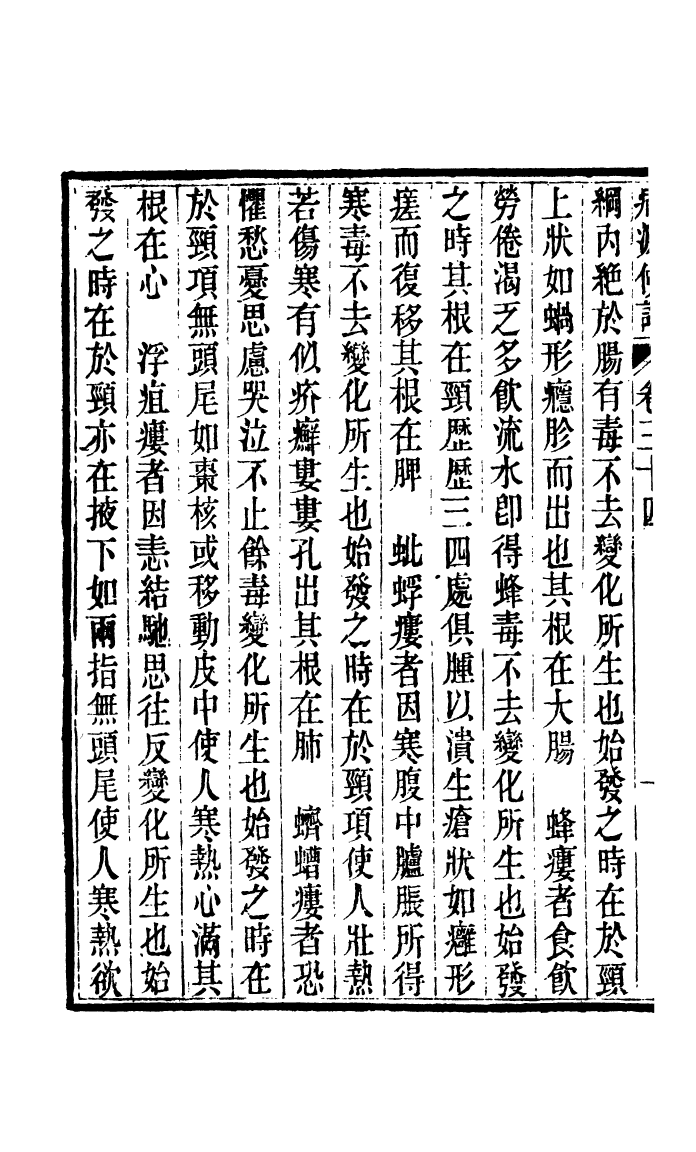 病源候論 卷三十四 一
綱內絕於腸有毒不去變化所生也始發之時在於頸
上狀如蝸形癮胗而出也其根在大腸　蜂瘻者食飲
勞倦渴乏多飲流水卽得蜂毒不去變化所生也始發
之時其根在頸歷歷三四處俱腫以潰生瘡狀如癰形
瘥而復移其根在脾　蚍蜉瘻者因寒腹中臚脹所得
寒毒不去變化所生也始發之時在於頸項使人壯熱
若傷寒有似疥癬婁婁孔出其根在肺　蠐螬瘻者恐
懼愁憂思慮哭泣不止餘毒變化所生也始發之時在
於頸項無頭尾如棗核或移動皮中使人寒熱心滿其
根在心　浮疽瘻者因恚結馳思往反變化所生也始
發之時在於頸亦在掖下如兩指無頭尾使人寒熱欲